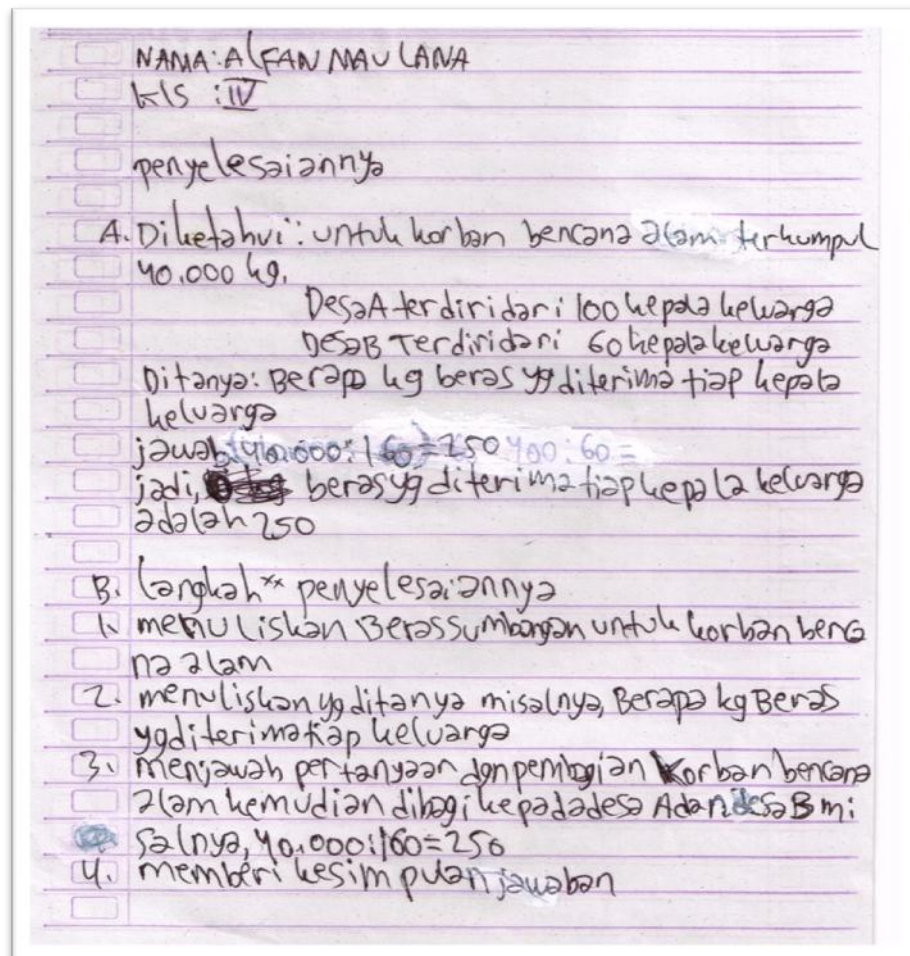 NAMA: ALFAN MAULANA
kls : IV
penyelesaiannya
A. Diketahui: untuk korban bencana alam terkumpul
40.000 kg.
Desa A terdiri dari 100 kepala keluarga
Desa B Terdiri dari 60 kepala keluarga
Ditanya: Berapa kg beras yg diterima tiap kepala
keluarga
jawab 40.000:160=250 400:60=
jadi, beras yg diterima tiap kepala keluarga
adalah 250
B. langkah** penyelesaiannya
1. menuliskan Beras Sumbangan untuk korban benca
na alam
2. menuliskan yg ditanya misalnya, Berapa kg Beras
yg diterima tiap keluarga
3. menjawab pertanyaan dgn pembagian korban bencana
alam kemudian dibagi kepada desa A dan desa B mi
salnya, 40.000:160=250
4. memberi kesimpulan jawaban